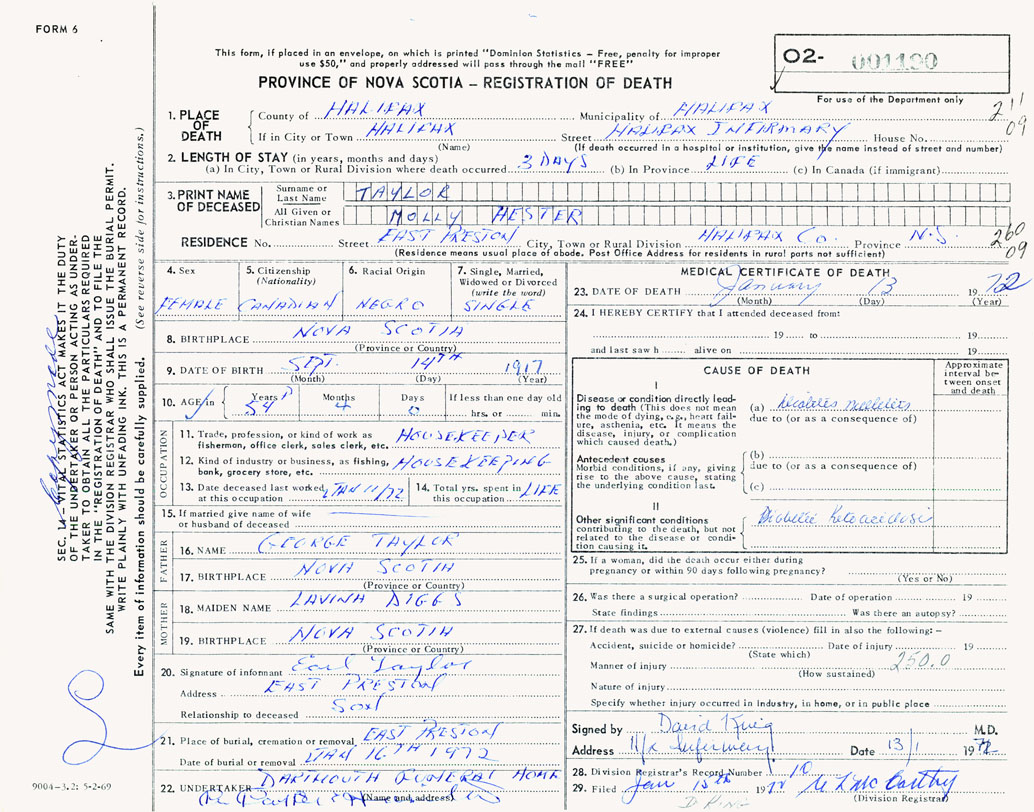 FORM 6
This form, if placed in an envelope, on which is printed "Dominion Statistics – Free, penalty for improper
use $50," and properly addressed will pass through the mail "FREE"
PROVINCE OF NOVA SCOTIA – REGISTRATION OF DEATH
O2- 001190
For use of the Department only
211
09
1. PLACE OF DEATH
County of HALIFAX Municipality of HALIFAX
If in City or Town HALIFAX Street HALIFAX INFIRMARY House No.
(Name) (If death occurred in a hospital or institution, give the name instead of street and number)
2. LENGTH OF STAY (in years, months and days)
(a) In City, Town or Rural Division where death occurred 3 DAYS (b) In Province LIFE (c) In Canada (if immigrant)
3. PRINT NAME OF DECEASED
Surname or Last Name TAYLOR
All Given or Christian Names MOLLY HESTER
RESIDENCE No. Street EAST PRESTON City, Town or Rural Division HALIFAX Co. Province N.S.
(Residence means usual place of abode. Post Office Address for residents in rural parts not sufficient)
260
09
4. Sex
FEMALE
5. Citizenship
(Nationality)
CANADIAN
6. Racial Origin
NEGRO
7. Single, Married,
Widowed or Divorced
(write the word)
SINGLE
8. BIRTHPLACE NOVA SCOTIA
(Province or Country)
9. DATE OF BIRTH SEPT. 14TH 1917
(Month) (Day) (Year)
10. AGE in Years Months Days If less than one day old
54 4 hrs. or min.
OCCUPATION
11. Trade, profession, or kind of work as HOUSEKEEPER
fishermen, office clerk, sales clerk, etc.
12. Kind of industry or business, as fishing, HOUSEKEEPING
bank, grocery store, etc.
13. Date deceased last worked JAN 11/72
at this occupation
14. Total yrs. spent in LIFE
this occupation
15. If married give name of wife
or husband of deceased
FATHER
16. NAME GEORGE TAYLOR
17. BIRTHPLACE NOVA SCOTIA
(Province or Country)
MOTHER
18. MAIDEN NAME LAVINA DIGGS
19. BIRTHPLACE NOVA SCOTIA
(Province or Country)
20. Signature of informant Earl Taylor
Address EAST PRESTON
Relationship to deceased SON
21. Place of burial, cremation or removal EAST PRESTON
Date of burial or removal JAN 16TH 1972
22. UNDERTAKER DARTMOUTH FUNERAL HOME
(Name and address)
MEDICAL CERTIFICATE OF DEATH
23. DATE OF DEATH January 13 1972
(Month) (Day) (Year)
24. I HEREBY CERTIFY that I attended deceased from:
19 to 19
and last saw h alive on 19
CAUSE OF DEATH
Approximate
interval be-
tween onset
and death
I
Disease or condition directly lead-
ing to death (This does not mean
the mode of dying, e.g., heart fail-
ure, asthenia, etc. It means the
disease, injury, or complication
which caused death.)
(a) Diabetes mellitus
due to (or as a consequence of)
Antecedent causes
Morbid conditions, if any, giving
rise to the above cause, stating
the underlying condition last.
(b)
due to (or as a consequence of)
(c)
II
Other significant conditions
contributing to the death, but not
related to the disease or condi-
tion causing it.
Diabetic ketoacidosis
25. If a woman, did the death occur either during
pregnancy or within 90 days following pregnancy?
(Yes or No)
26. Was there a surgical operation? Date of operation 19
State findings Was there an autopsy?
27. If death was due to external causes (violence) fill in also the following: –
Accident, suicide or homicide? Date of injury 19
(State which)
Manner of injury 250.0
(How sustained)
Nature of injury
Specify whether injury occurred in industry, in home, or in public place
Signed by David M.D.
Address Hfx Infirmary Date 13/1 1972
28. Division Registrar's Record Number 10
29. Filed Jan 15th 1972 McCarthy
(Division Registrar)
SEC. 14 – VITAL STATISTICS ACT MAKES IT THE DUTY
OF THE UNDERTAKER OR PERSON ACTING AS UNDER-
TAKER TO OBTAIN ALL THE PARTICULARS REQUIRED
IN THE "REGISTRATION OF DEATH" AND TO FILE THE
SAME WITH THE DIVISION REGISTRAR WHO SHALL ISSUE THE BURIAL PERMIT.
WRITE PLAINLY WITH UNFADING INK. THIS IS A PERMANENT RECORD.
Every item of information should be carefully supplied. (See reverse side for instructions.)
9004–3.2: 5-2-69